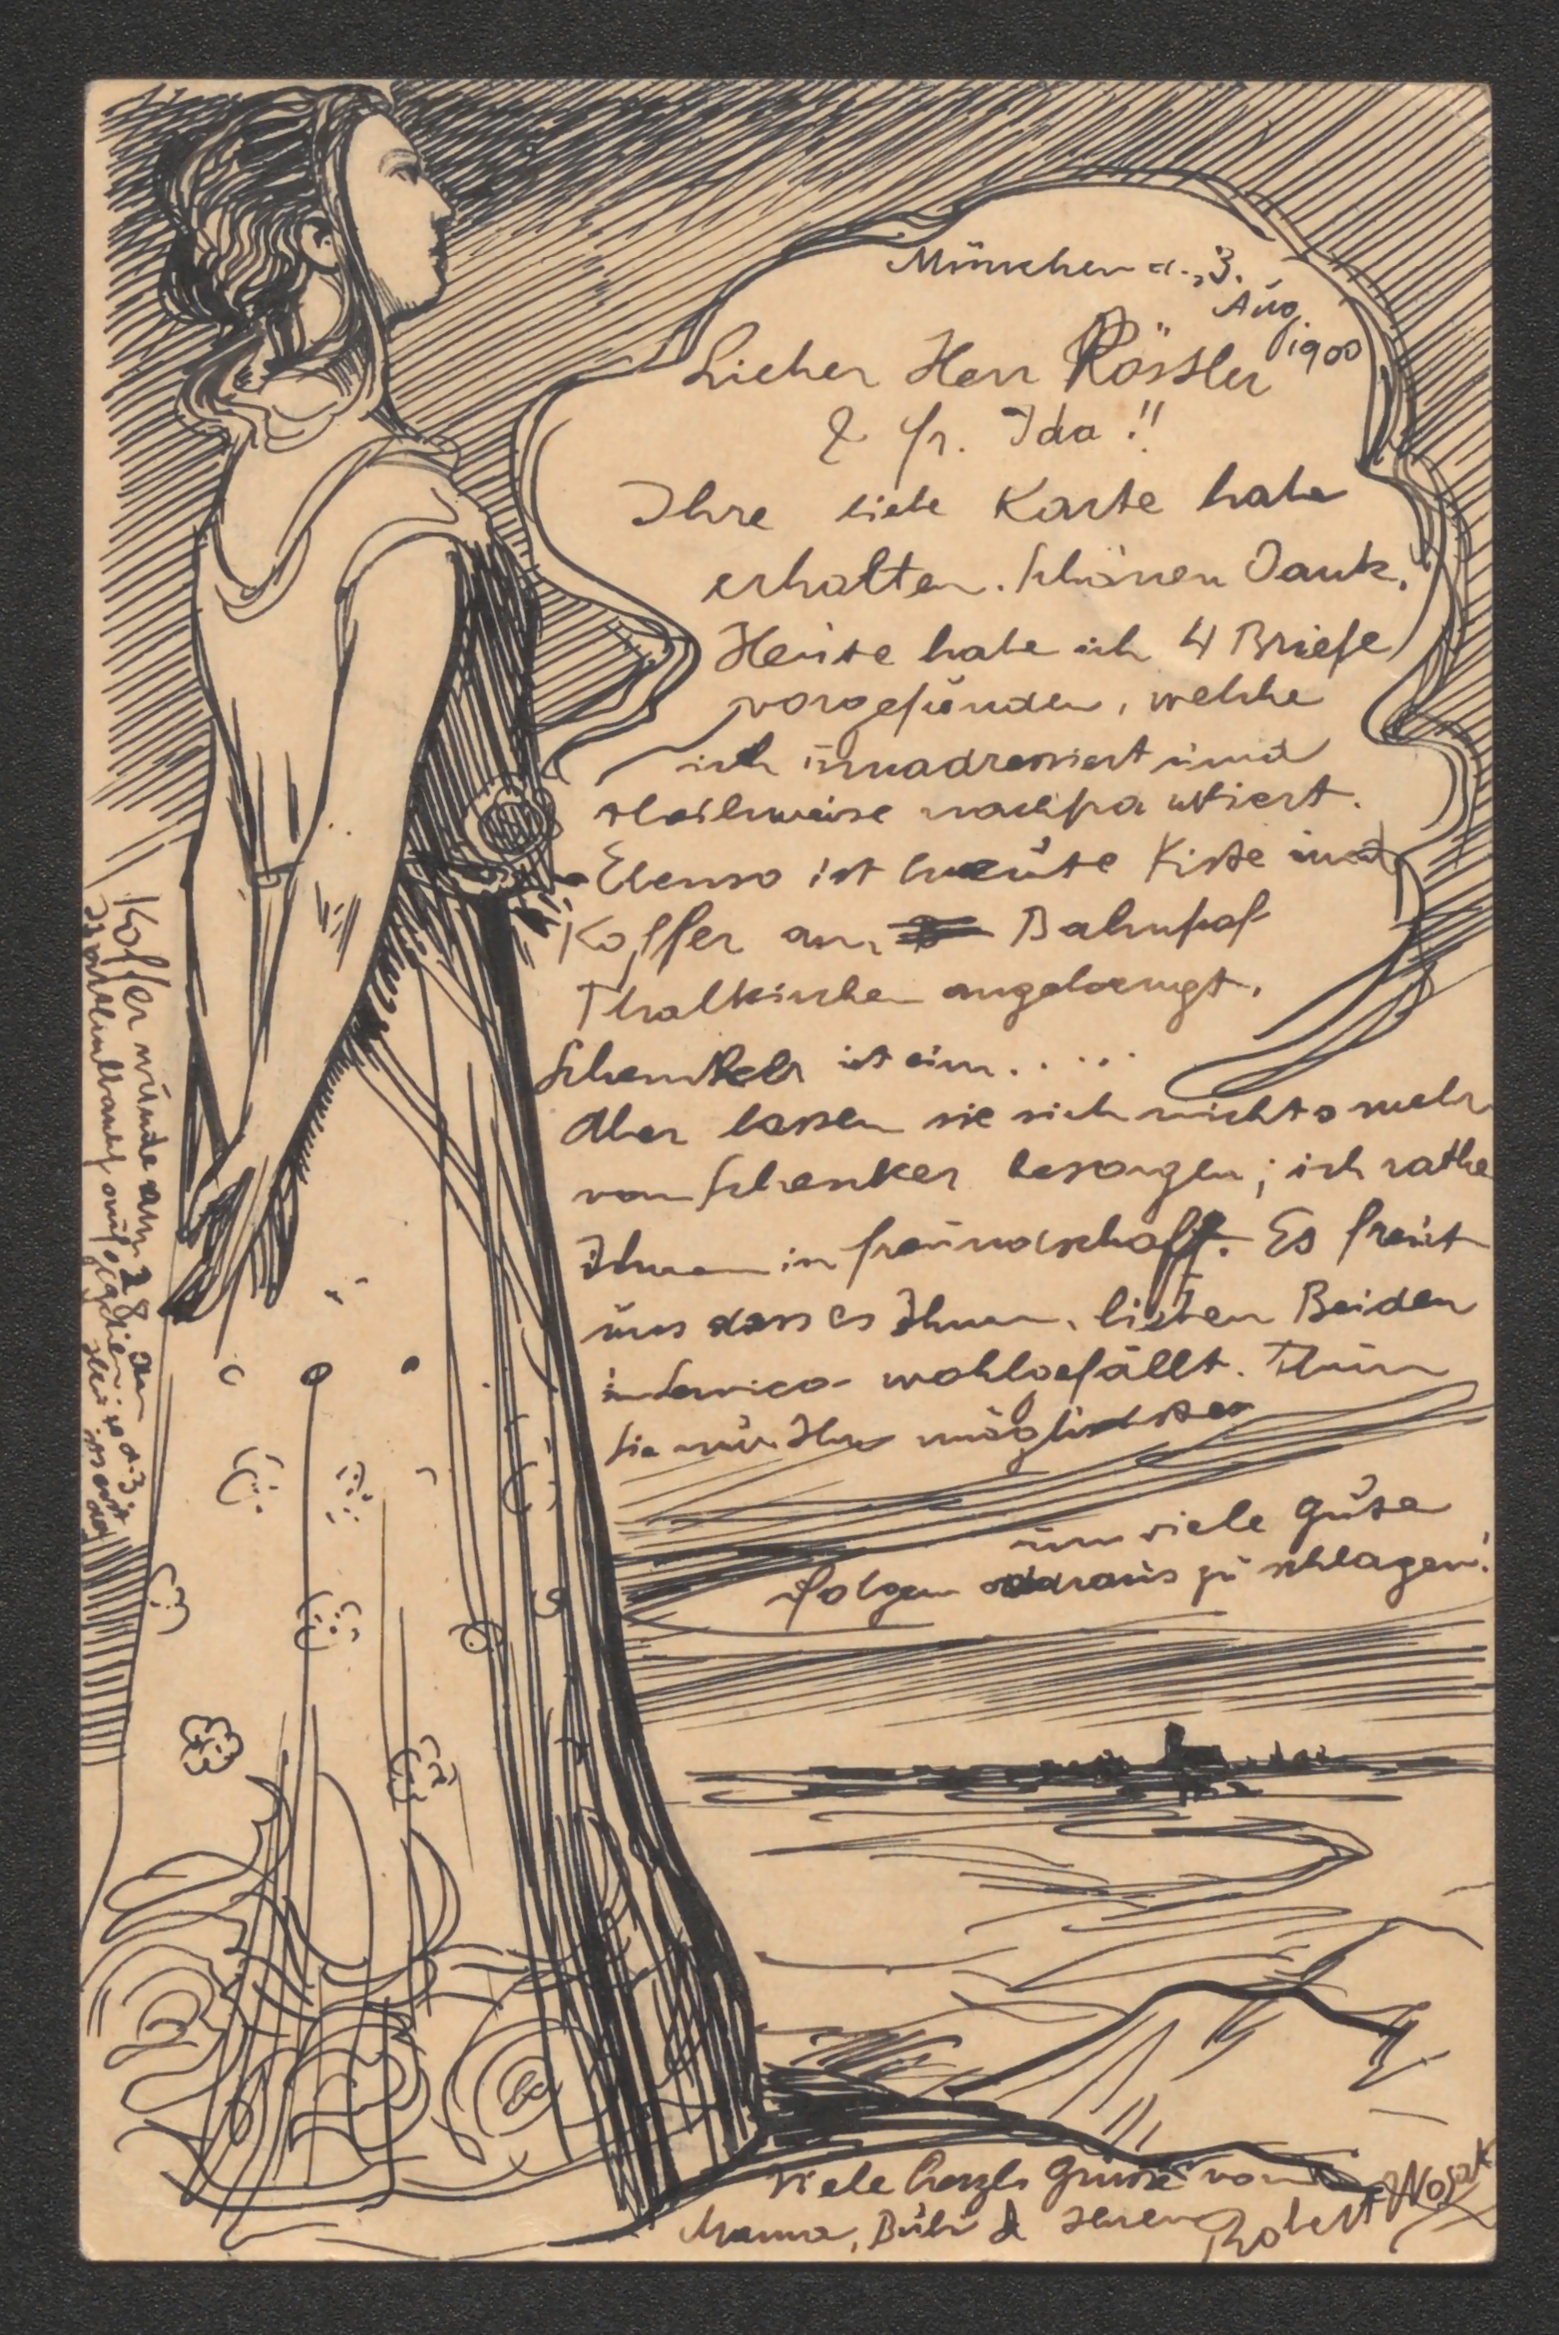 München d., 3.
Aug
1900
Lieber Herr Rössler
& fr. Ida !!
Ihre liebe Karte habe
erhalten. Schönen Dank.
Heute habe ich 4 Briefe
vorgefunden, welche
ich umadressiert und
theilweise
Ebenso ist heute Kiste und
Koffer am Bahnhof
Thalkirchen angelangt.
Schenker ist ein.....
Aber lassen sie sich nichts mehr
von Schenker besorgen; ich rathe
Ihnen in freundschaft. Es freut
uns dass es Ihnen, lieben Beiden
in wohlgefällt. Thun
Sie nur Ihr möglichstes
um viele gute
Folgen daraus zu schlagen!
Viele herzl. Grüsse von
Mama, Bubi & Ihren Robert
Koffer wurde am 28.